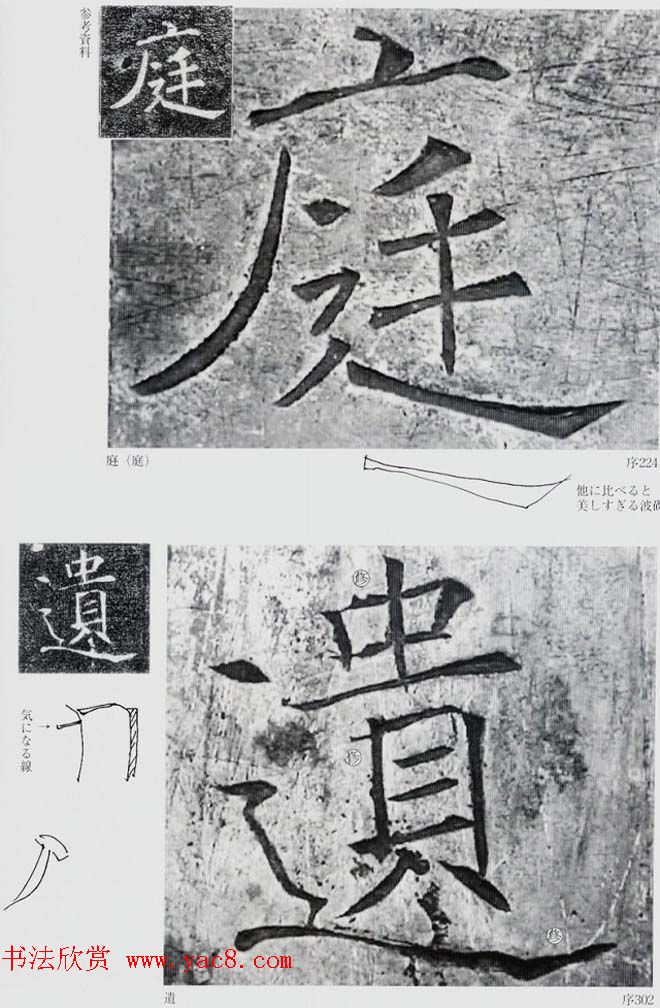 参考資料
庭
庭
庭（庭）
序224
他に比べると
美しすぎる波磔
遺
遺
修
修
修
気になる線
遺
序302
书法欣赏 www.yac8.com